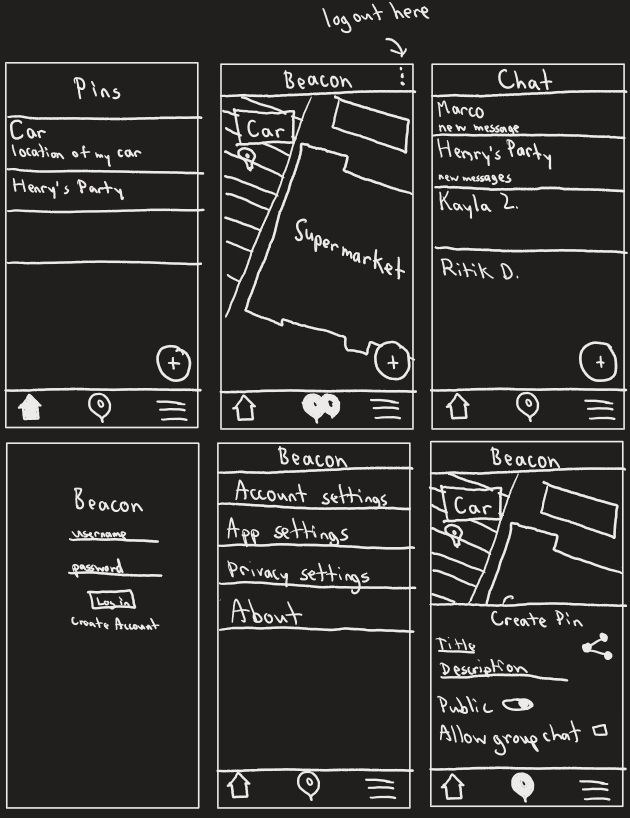 logout here
Pins
Car
location of my car
Henry's Party
+
Beacon
Car
Supermarket
+
Chat
Marco
new message
Henry's Party
new messages
Kayla Z.
Ritik D.
+
Beacon
username
password
Log in
Create Account
Beacon
Account settings
App settings
Privacy settings
About
Beacon
Car
Create Pin
Title
Description
Public
Allow group chat